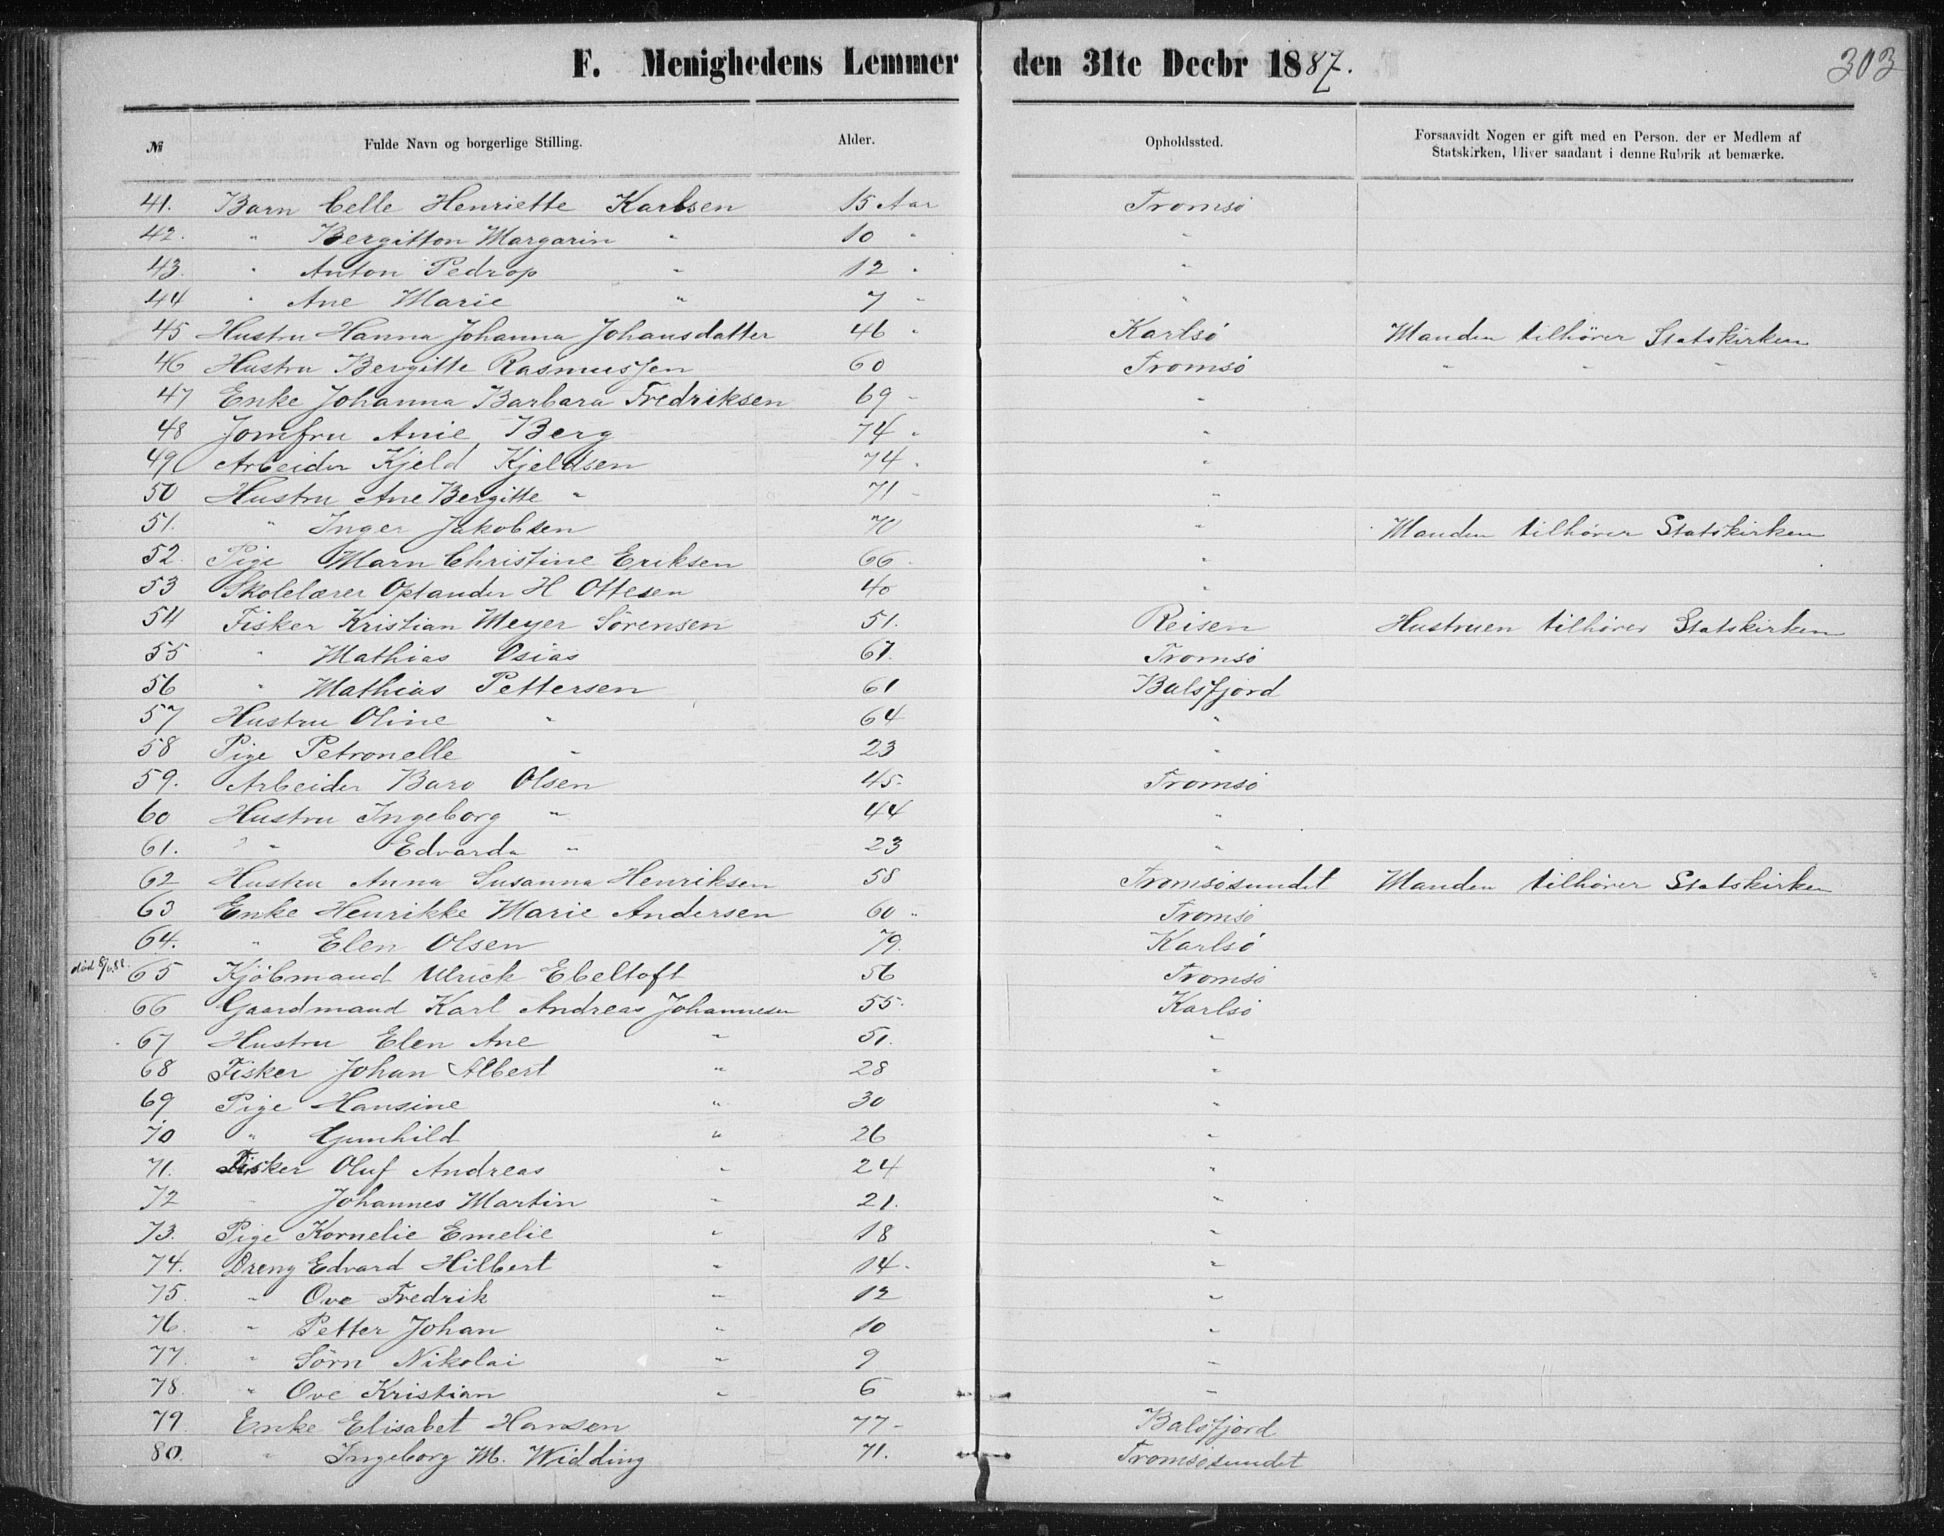 F. Menighedens Lemmer den 31te Decbr 1887. 303
№ Fulde Navn og borgerlige Stilling. Alder. Opholdssted. Forsaavidt Nogen er gift med en Person. der er Medlem af
Statskirken, bliver saadant i denne Rubrik at bemærke.
41. Barn Celle Henriette Karlsen 15 Aar Tromsö
42. " Bergitton Margarin " 10 " "
43. " Anton Pedrop " 12 " "
44 " Ane Marie " 7 " "
45 Hustru Hanna Johanna Johansdatter 46 " Karlsö Manden tilhører Statskirken
46 Hustru Bergitte Rasmussen 60 Tromsö " " "
47 Enke Johanna Barbara Fredriksen 69 " "
48 Jomfru Anie Berg 74 " "
49 Arbeider Kjeld Kjeldsen 74 " "
50 Hustru Ane Bergitte " 71 " "
51. " Inger Jakobsen 70 " Manden tilhører Statskirken
52. Pige Marn Christine Eriksen 66 " "
53 Skolelærer Optander H Ottesen 40 "
54 Fisker Kristian Meyer Sörensen 51. Reisen Hustruen tilhører Statskirken
55 " Mathias Osias 61. Tromsö
56 " Mathias Pettersen 61 Balsfjord
57 Hustru Oline " 64 "
58 Pige Petronelle " 23 "
59. Arbeider Baro Olsen 45. Tromsö
60 Hustru Ingeborg " 44 "
61. " Edvarda " 23 "
62 Hustru Anna Susanna Henriksen 58 Tromsösundet Manden tilhører Statskirken
63 Enke Henrikke Marie Andersen 60 " Tromsö
64. " Elen Olsen 79. Karlsö
död 65 Kjöbmand Ulrick Ebeltoft 56 Tromsö
66 Gaardmand Karl Andreas Johannesen 55. Karlsö
67 Hustru Elen Ane " 51. "
68 Fisker Johan Albert " 28 "
69 Pige Hansine " 30 "
70 " Gunhild " 26 "
71. Fisker Oluf Andreas " 24 "
72 " Johannes Martin " 21. "
73. Pige Kornelie Emelie " 18 "
74. Dreng Edvard Hilbert " 14 " "
75. " Ove Fredrik " 12 "
76. " Petter Johan " 10 "
77. " Sörn Nikolai " 9 "
78. " Ove Kristian " 6 "
79 Enke Elisabet Hansen 77 " Balsfjord
80. " Ingeborg M. Widding 71. Tromsösundet